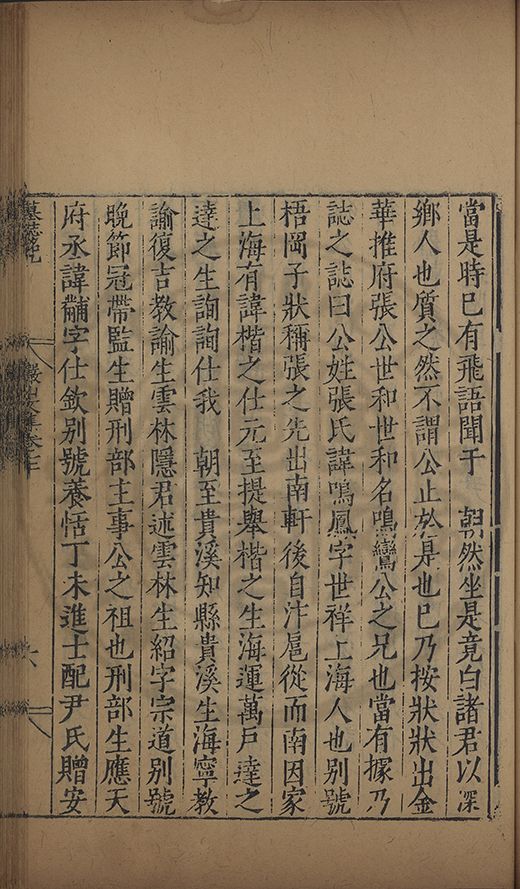 當是時已有飛語聞于　朝然坐是竟白諸君以深
鄉人也質之然不謂公止於是也已乃按狀狀出金
華推府張公世和世和名鳴鸞公之兄也當有據乃
誌之誌曰公姓張氏諱鳴鳳字世祥上海人也別號
梧岡子狀稱張之先出南軒後自汴扈從而南因家
上海有諱楷之仕元至提舉楷之生海運萬戶達之
達之生詢詢仕我　朝至貴溪知縣貴溪生海寧教
諭復吉教諭生雲林隱君述雲林生紹字宗道別號
晚節冠帶監生贈刑部主事公之祖也刑部生應天
府丞諱黼字仕欽別號養恬丁未進士配尹氏贈安
墓誌銘
儼山文集卷七十二
六